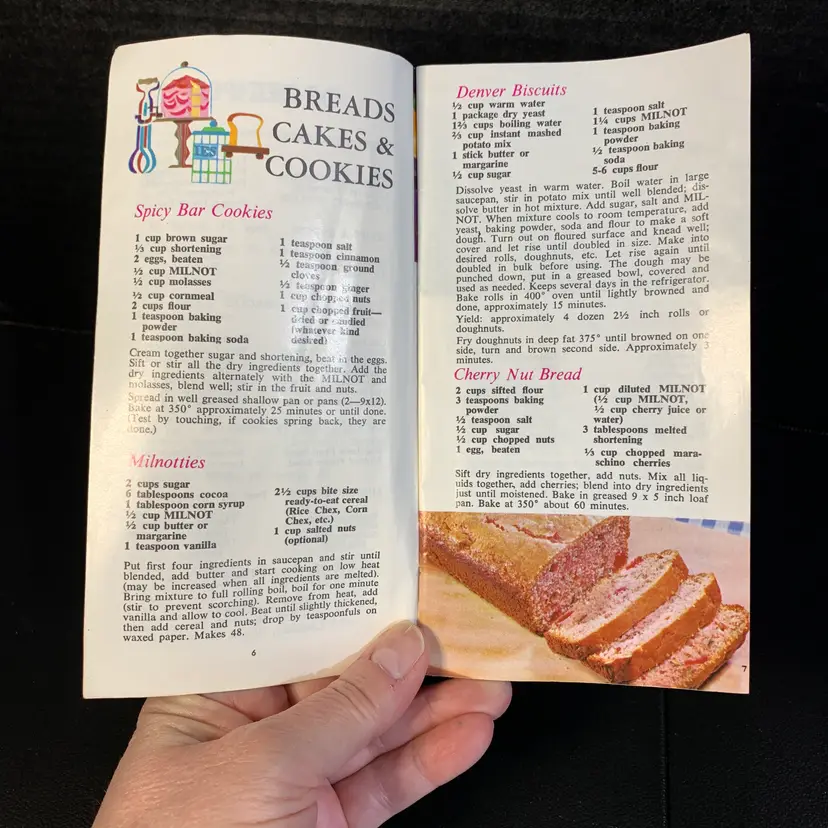 BREADS
CAKES &
COOKIES
IES
Spicy Bar Cookies
1 cup brown sugar
⅓ cup shortening
2 eggs, beaten
½ cup MILNOT
½ cup molasses
½ cup cornmeal
2 cups flour
1 teaspoon baking
powder
1 teaspoon baking soda
1 teaspoon salt
1 teaspoon cinnamon
½ teaspoon ground
cloves
½ teaspoon ginger
1 cup chopped nuts
1 cup chopped fruit—
dried or candied
(whatever kind
desired)
Cream together sugar and shortening, beat in the eggs.
Sift or stir all the dry ingredients together. Add the
dry ingredients alternately with the MILNOT and
molasses, blend well; stir in the fruit and nuts.
Spread in well greased shallow pan or pans (2—9x12).
Bake at 350° approximately 25 minutes or until done.
(Test by touching, if cookies spring back, they are
done.)
Milnotties
2 cups sugar
6 tablespoons cocoa
1 tablespoon corn syrup
½ cup MILNOT
½ cup butter or
margarine
1 teaspoon vanilla
2½ cups bite size
ready-to-eat cereal
(Rice Chex, Corn
Chex, etc.)
1 cup salted nuts
(optional)
Put first four ingredients in saucepan and stir until
blended, add butter and start cooking on low heat
(may be increased when all ingredients are melted).
Bring mixture to full rolling boil, boil for one minute
(stir to prevent scorching). Remove from heat, add
vanilla and allow to cool. Beat until slightly thickened,
then add cereal and nuts; drop by teaspoonfuls on
waxed paper. Makes 48.
6
Denver Biscuits
½ cup warm water
1 package dry yeast
1⅔ cups boiling water
⅔ cup instant mashed
potato mix
1 stick butter or
margarine
½ cup sugar
1 teaspoon salt
1¼ cups MILNOT
1 teaspoon baking
powder
½ teaspoon baking
soda
5-6 cups flour
Dissolve yeast in warm water. Boil water in large
saucepan, stir in potato mix until well blended; dis-
solve butter in hot mixture. Add sugar, salt and MIL-
NOT. When mixture cools to room temperature, add
yeast, baking powder, soda and flour to make a soft
dough. Turn out on floured surface and knead well;
cover and let rise until doubled in size. Make into
desired rolls, doughnuts, etc. Let rise again until
doubled in bulk before using. The dough may be
punched down, put in a greased bowl, covered and
used as needed. Keeps several days in the refrigerator.
Bake rolls in 400° oven until lightly browned and
done, approximately 15 minutes.
Yield: approximately 4 dozen 2½ inch rolls or
doughnuts.
Fry doughnuts in deep fat 375° until browned on one
side, turn and brown second side. Approximately 3
minutes.
Cherry Nut Bread
2 cups sifted flour
3 teaspoons baking
powder
½ teaspoon salt
½ cup sugar
½ cup chopped nuts
1 egg, beaten
1 cup diluted MILNOT
(½ cup MILNOT,
½ cup cherry juice or
water)
3 tablespoons melted
shortening
⅓ cup chopped mara-
schino cherries
Sift dry ingredients together, add nuts. Mix all liq-
uids together, add cherries; blend into dry ingredients
just until moistened. Bake in greased 9 x 5 inch loaf
pan. Bake at 350° about 60 minutes.
7